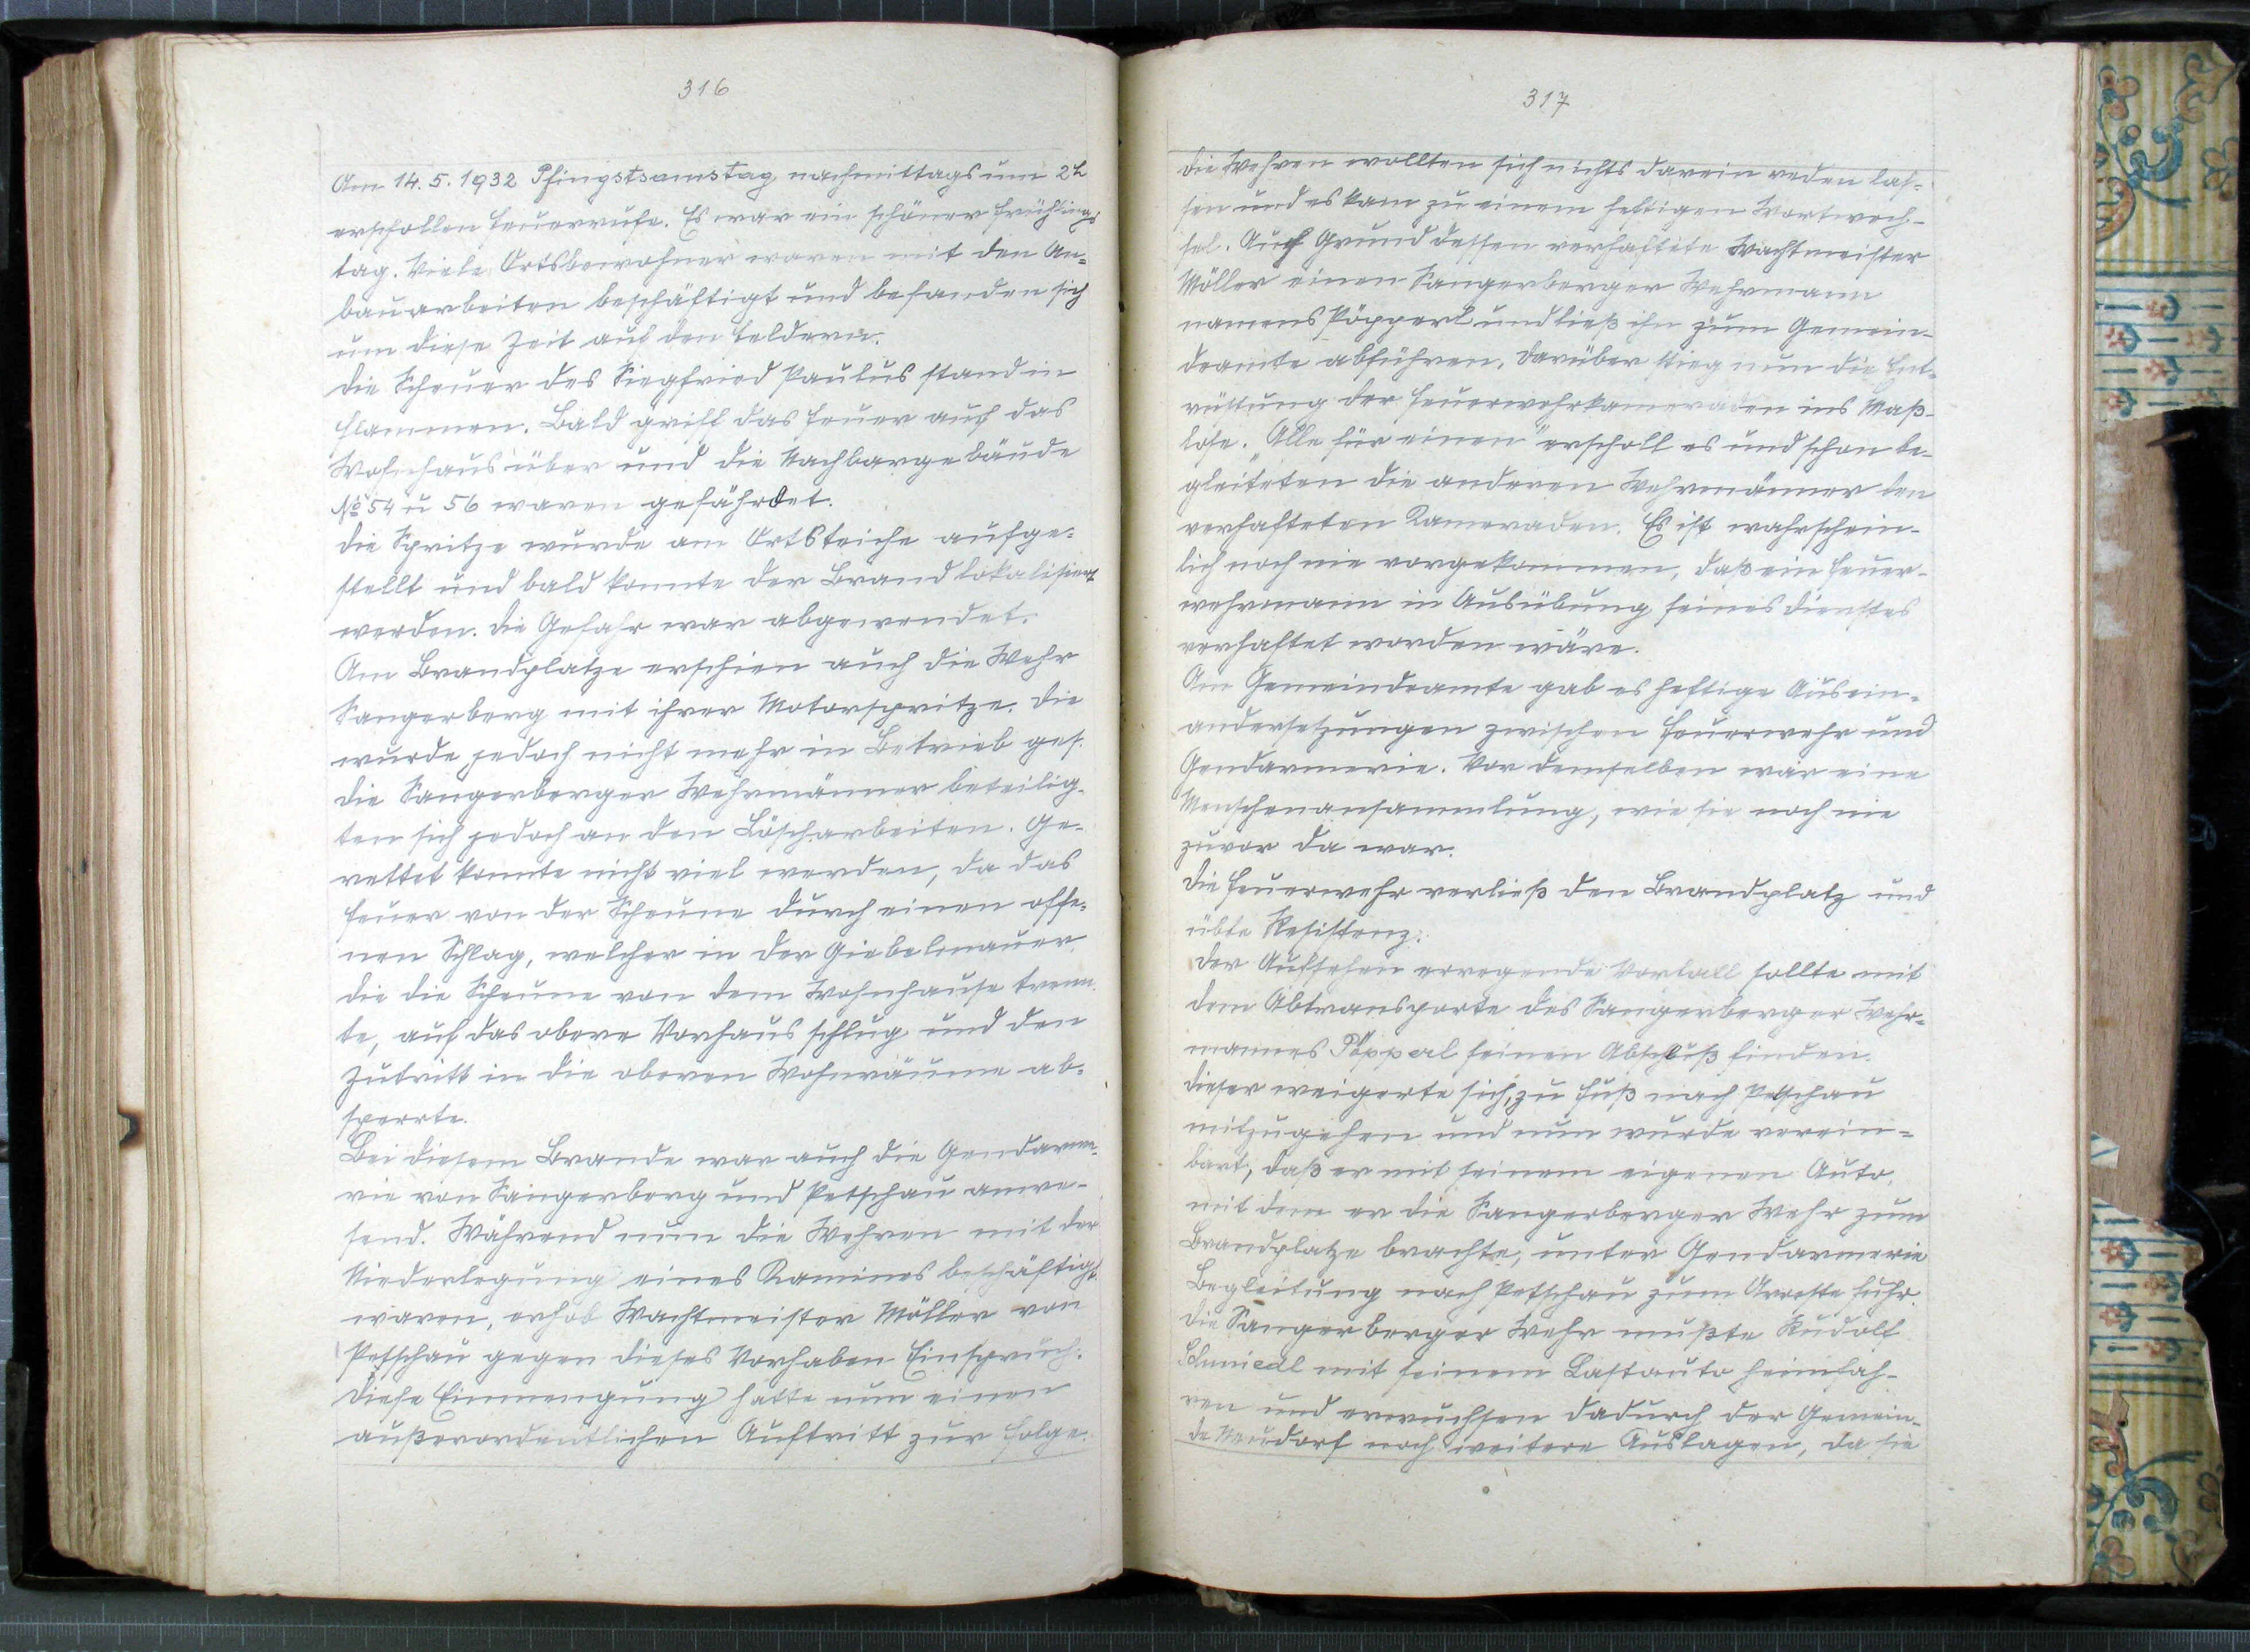 316
Am 14.5.1932 Pfingstsamstag nachmittags um 2h
erschollen Feuerrufe. Es war ein schöner Frühlings
tag. Viele Ortsbewohner waren mit den An=
bauarbeiten beschäftigt und befanden sich
um diese Zeit auf den Feldern.
Die Scheuer des Siegfried Paulus stand in
Flammen. Bald griff das Feuer auf das
Wohnhaus über und die Nachbargebäude
No 54 u 56 waren gefährdet.
Die Spritze wurde am Ortsteiche aufge=
stellt und bald konnte der Brand lokalisiert
werden. Die Gefahr war abgewendet.
Am Brandplatze erschien auch die Wehr
Sangerberg mit ihrer Motorspritze. Die
wurde jedoch nicht mehr in Betrieb ges.
Die Sangerberger Wehrmänner beteilig-
ten sich jedoch an den Löscharbeiten. Ge-
rettet konnte nicht viel werden, da das
Feuer von der Scheune durch einen offe=
nen Schlag, welcher in der Giebelmauer,
die die Scheune von dem Wohnhause trenn-
te, auf das obere Vorhaus schlug und den
Zutritt in die oberen Wohnräume ab-
sperrte.
Bei diesem Brande war auch die Gendarme-
rie von Sangerberg und Petschau anwe-
send. Während nun die Wehren mit der
Niederlegung eines Kamines beschäftigt
waren, erhob Wachtmeister Möller von
Petschau gegen dieses Vorhaben Einspruch.
Diese Einmengung hatte nun einen
außerordentlichen Auftritt zur Folge.
317
Die Wehren wollten sich nichts darein reden las=
sen und es kam zu einem heftigen Wortwech-
sel. Auf Grund dessen verhaftete Wachtmeister
Möller einen Sangerberger Wehrmann
namens Pöpperl und ließ ihn zum Gemein-
deamte abführen. Darüber stieg nun die Ent-
rüstung der Feuerwehrkameraden ins Maß-
lose. "Alle für einen" erscholl es und schon be-
gleiteten die anderen Wehrmänner den
verhafteten Kameraden. Es ist wahrschein-
lich noch nie vorgekommen, daß ein Feuer-
wehrmann in Ausübung seines Dienstes
verhaftet worden wäre.
Am Gemeindeamte gab es heftige Ausein-
andersetzungen zwischen Feuerwehr und
Gendarmerie. Vor demselben war eine
Menschenansammlung, wie sie noch nie
zuvor da war.
Die Feuerwehr verließ den Brandplatz und
übte Resistenz.
Der Aufsehen erregende Vorfall sollte mit
dem Abtransporte des Sangerberger Wehr=
mannes Pöpperl seinen Abschluß finden.
Dieser weigerte sich, zu Fuß nach Petschau
mitzugehen und nun wurde verein=
bart, daß er mit seinem eigenen Auto,
mit dem er die Sangerberger Wehr zum
Brandplatze brachte, unter Gendarmerie
Begleitung nach Petschau zum Arreste fuhr.
Die Sangerberger Wehr mußte Rudolf
Schmiedl mit seinem Lastauto heimfah-
ren und erwuchsen dadurch der Gemein-
de Neudorf noch weitere Auslagen, da sie